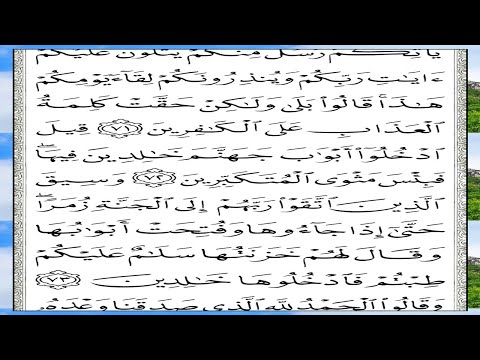 يَأۡتِكُمۡ رُسُلٌ مِّنكُمۡ يَتۡلُونَ عَلَيۡكُمۡ
ءَايَٰتِ رَبِّكُمۡ وَيُنذِرُونَكُمۡ لِقَآءَ يَوۡمِكُمۡ
هَٰذَاۚ قَالُواْ بَلَىٰ وَلَٰكِنۡ حَقَّتۡ كَلِمَةُ
ٱلۡعَذَابِ عَلَى ٱلۡكَٰفِرِينَ ٧١ قِيلَ
ٱدۡخُلُوٓاْ أَبۡوَٰبَ جَهَنَّمَ خَٰلِدِينَ فِيهَاۖ
فَبِئۡسَ مَثۡوَى ٱلۡمُتَكَبِّرِينَ ٧٢ وَسِيقَ
ٱلَّذِينَ ٱتَّقَوۡاْ رَبَّهُمۡ إِلَى ٱلۡجَنَّةِ زُمَرًاۖ
حَتَّىٰٓ إِذَا جَآءُوهَا وَفُتِحَتۡ أَبۡوَٰبُهَا
وَقَالَ لَهُمۡ خَزَنَتُهَا سَلَٰمٌ عَلَيۡكُمۡ
طِبۡتُمۡ فَٱدۡخُلُوهَا خَٰلِدِينَ ٧٣
وَقَالُواْ ٱلۡحَمۡدُ لِلَّهِ ٱلَّذِي صَدَقَنَا وَعۡدَهُۥ